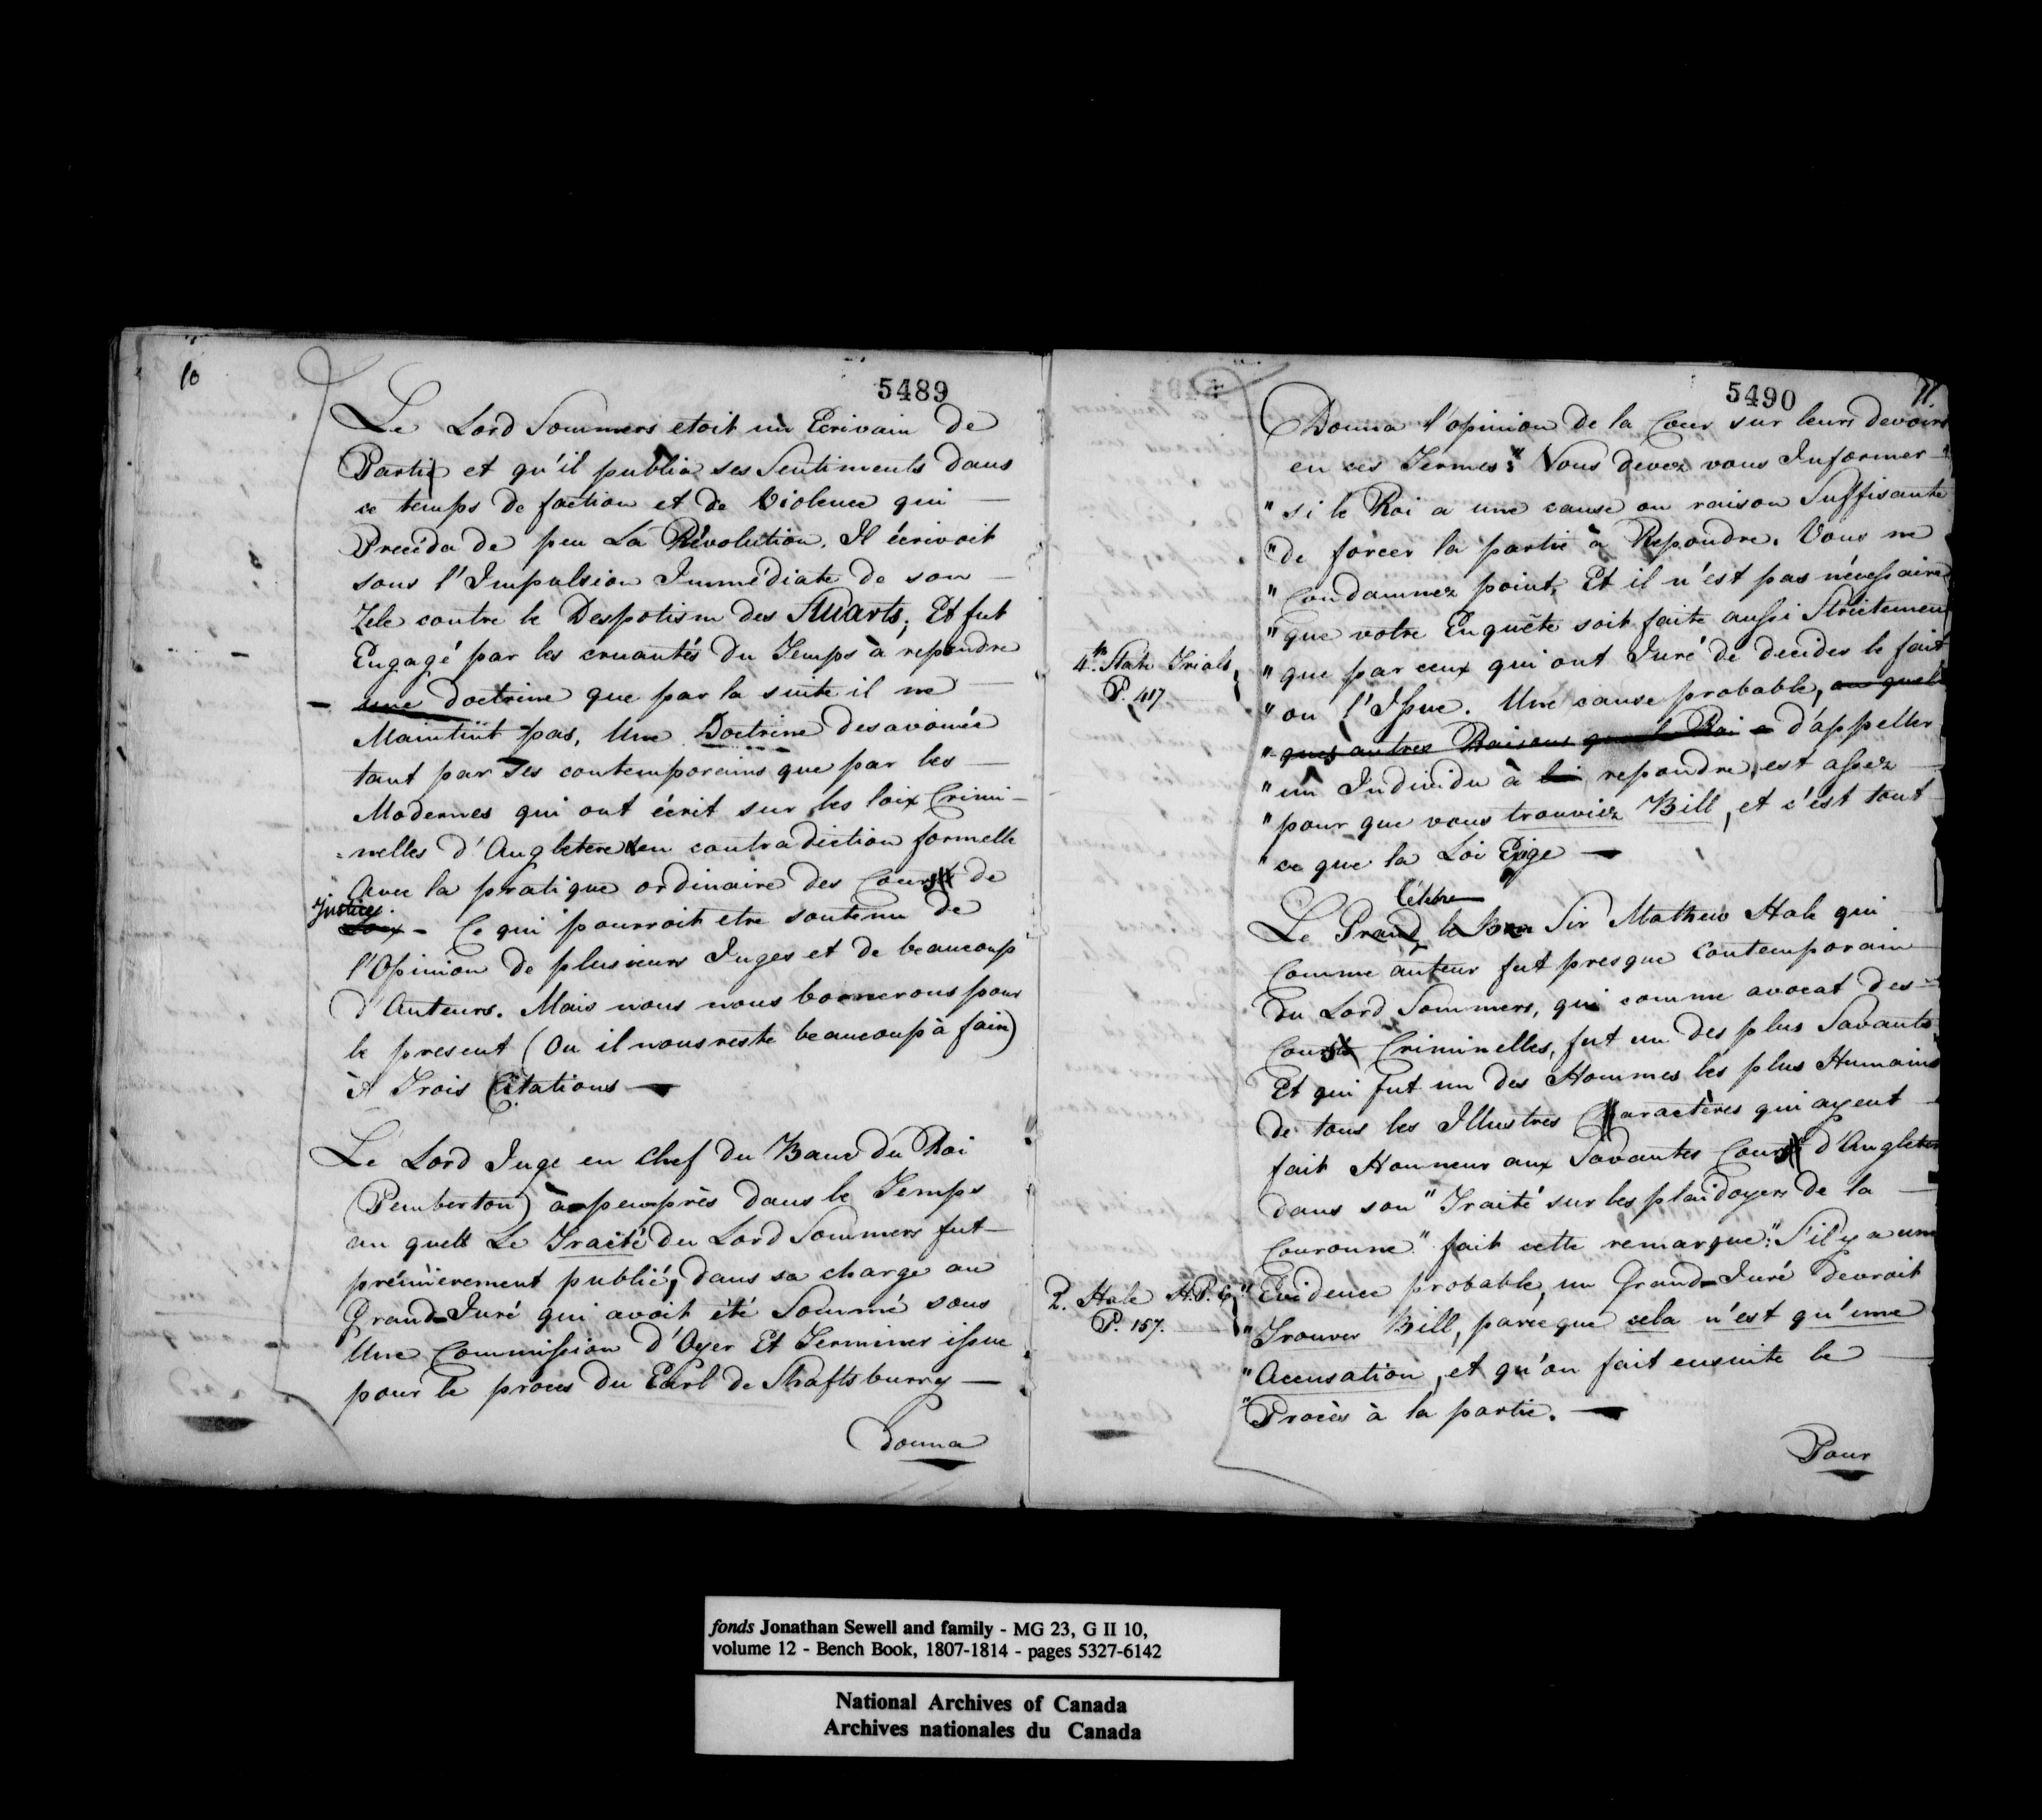 10
5489
Le Lord Sommers etoit un Ecrivain de
Parti et qu'il publia ses Sentiments dans
ce temps de faction et de Violence qui —
Preceda de peu La Révolution. Il écrivoit
sous l'Impulsion Immédiate de son —
Zele contre le Despotism des Stuarts; Et fut
Engagé par les cruautés du Temps à rependre
— une doctrine que par la suite il ne —
Maintint pas, Une Doctrine desavouée
tant par Ses contemporains que par les —
Modernes qui ont écrit sur les loix Crimi-
=nelles d'Angletere en contradiction formelle
Avec la pratique ordinaire des Cours de
Justice.
Loix - Ce qui pourroit etre soutenu de
l'Opinion de plusieurs Juges et de beaucoup
d'Auteurs. Mais nous nous bornerons pour
le present (Ou il nous reste beaucoup à fair)
à Trois Citations —
Le Lord Juge en Chef du Banc du Roi
(Pemberton) à-peu-près dans le Temps
au quell Le Traité du Lord Sommers fut —
prémièrement publié, dans sa charge au
Grand-Juré qui avoit été Sommé sous
Une Commission d'Oyer Et Terminer issue
pour le proces du Earl de Shaftsburry —
Donna
5490
11.
Donna l'opinion de la Cour sur leurs devoirs
en ces Termes: "Vous devez vous Informer
"si le Roi a une cause ou raison Suffisante
"de forcer la partie à Repondre. Vous ne
"Condamnez point, Et il n'est pas nécessaire
"que votre Enquête soit faite aussi Strictement
4th State Trials,
P. 417.
"que par ceux qui ont Juré de decider le fait
"ou l'Issue. Une cause probable, ou quel
"ques autres Raisons que le Roi a d'appeller
"un Individu à lui repondre, est assez
"pour que vous trouviez Bill, et c'est tout
"ce que la Loi Exige —
Célebre
Le Grand, le Bon Sir Mathew Hale qui
Comme auteur fut presque Contemporain
du Lord Sommers, qui comme avocat des
Cours Criminelles, fut un des plus Savants,
Et qui fut un des Hommes les plus Humains
de tous les Illustres Caractères qui ayent —
fait Honneur aux Savantes Cours d'Angleterre
dans son "Traité sur les plaidoyers de la —
Couronne" fait cette remarque: "S'il y a une
2. Hale H.P.C.
P. 157.
"Evidence probable, un Grand-Juré devroit
"Trouver Bill, parceque cela n'est qu'une
"Accusation, et qu'on fait ensuite le
"Procès à la partie. —
Pour
fonds Jonathan Sewell and family - MG 23, G II 10,
volume 12 - Bench Book, 1807-1814 - pages 5327-6142
National Archives of Canada
Archives nationales du Canada